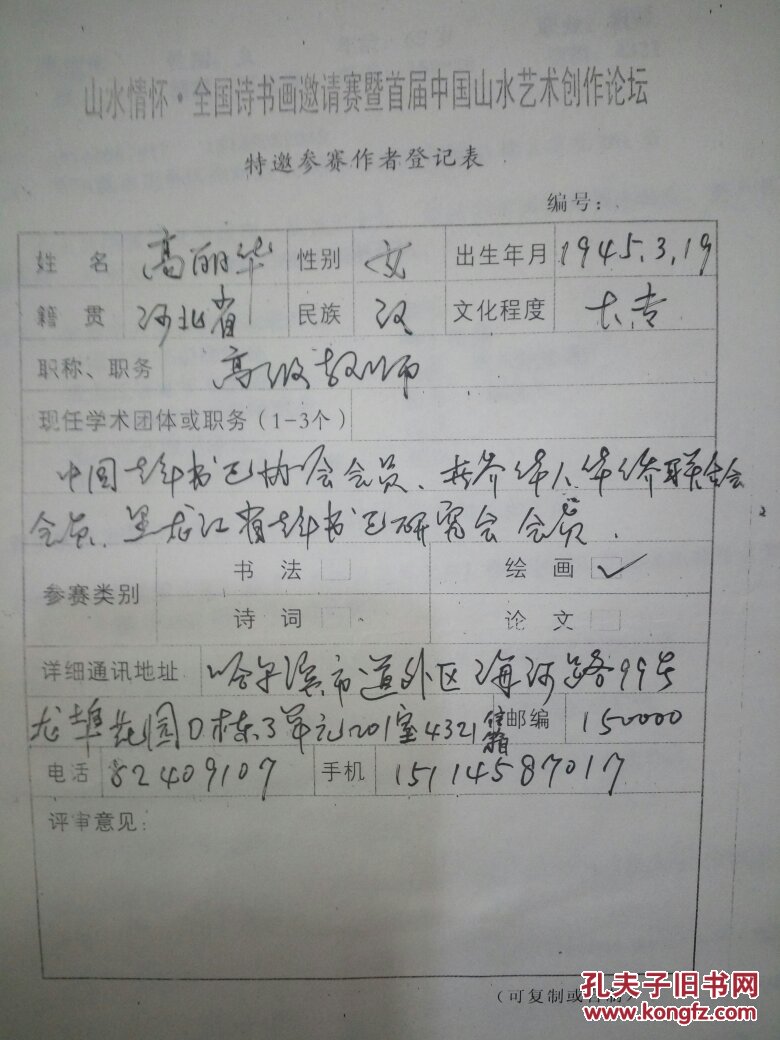 山水情怀·全国诗书画邀请赛暨首届中国山水艺术创作论坛
特邀参赛作者登记表
编号:
姓名 高丽华 性别 女 出生年月 1945.3.19
籍贯 河北省 民族 汉 文化程度 大专
职称、职务 高级教师
现任学术团体或职务(1-3个)
中国老年书画协会会员、世界华人华侨联合会
会员、黑龙江省老年书画研究会会员.
参赛类别 书法 绘画 ✓
诗词 论文
详细通讯地址 哈尔滨市道外区海河路99号
龙埠花园D栋3单元201室4321信箱 邮编 150000
电话 82409107 手机 15114587017
评审意见:
(可复制或
孔夫子旧书网
www.kongfz.com